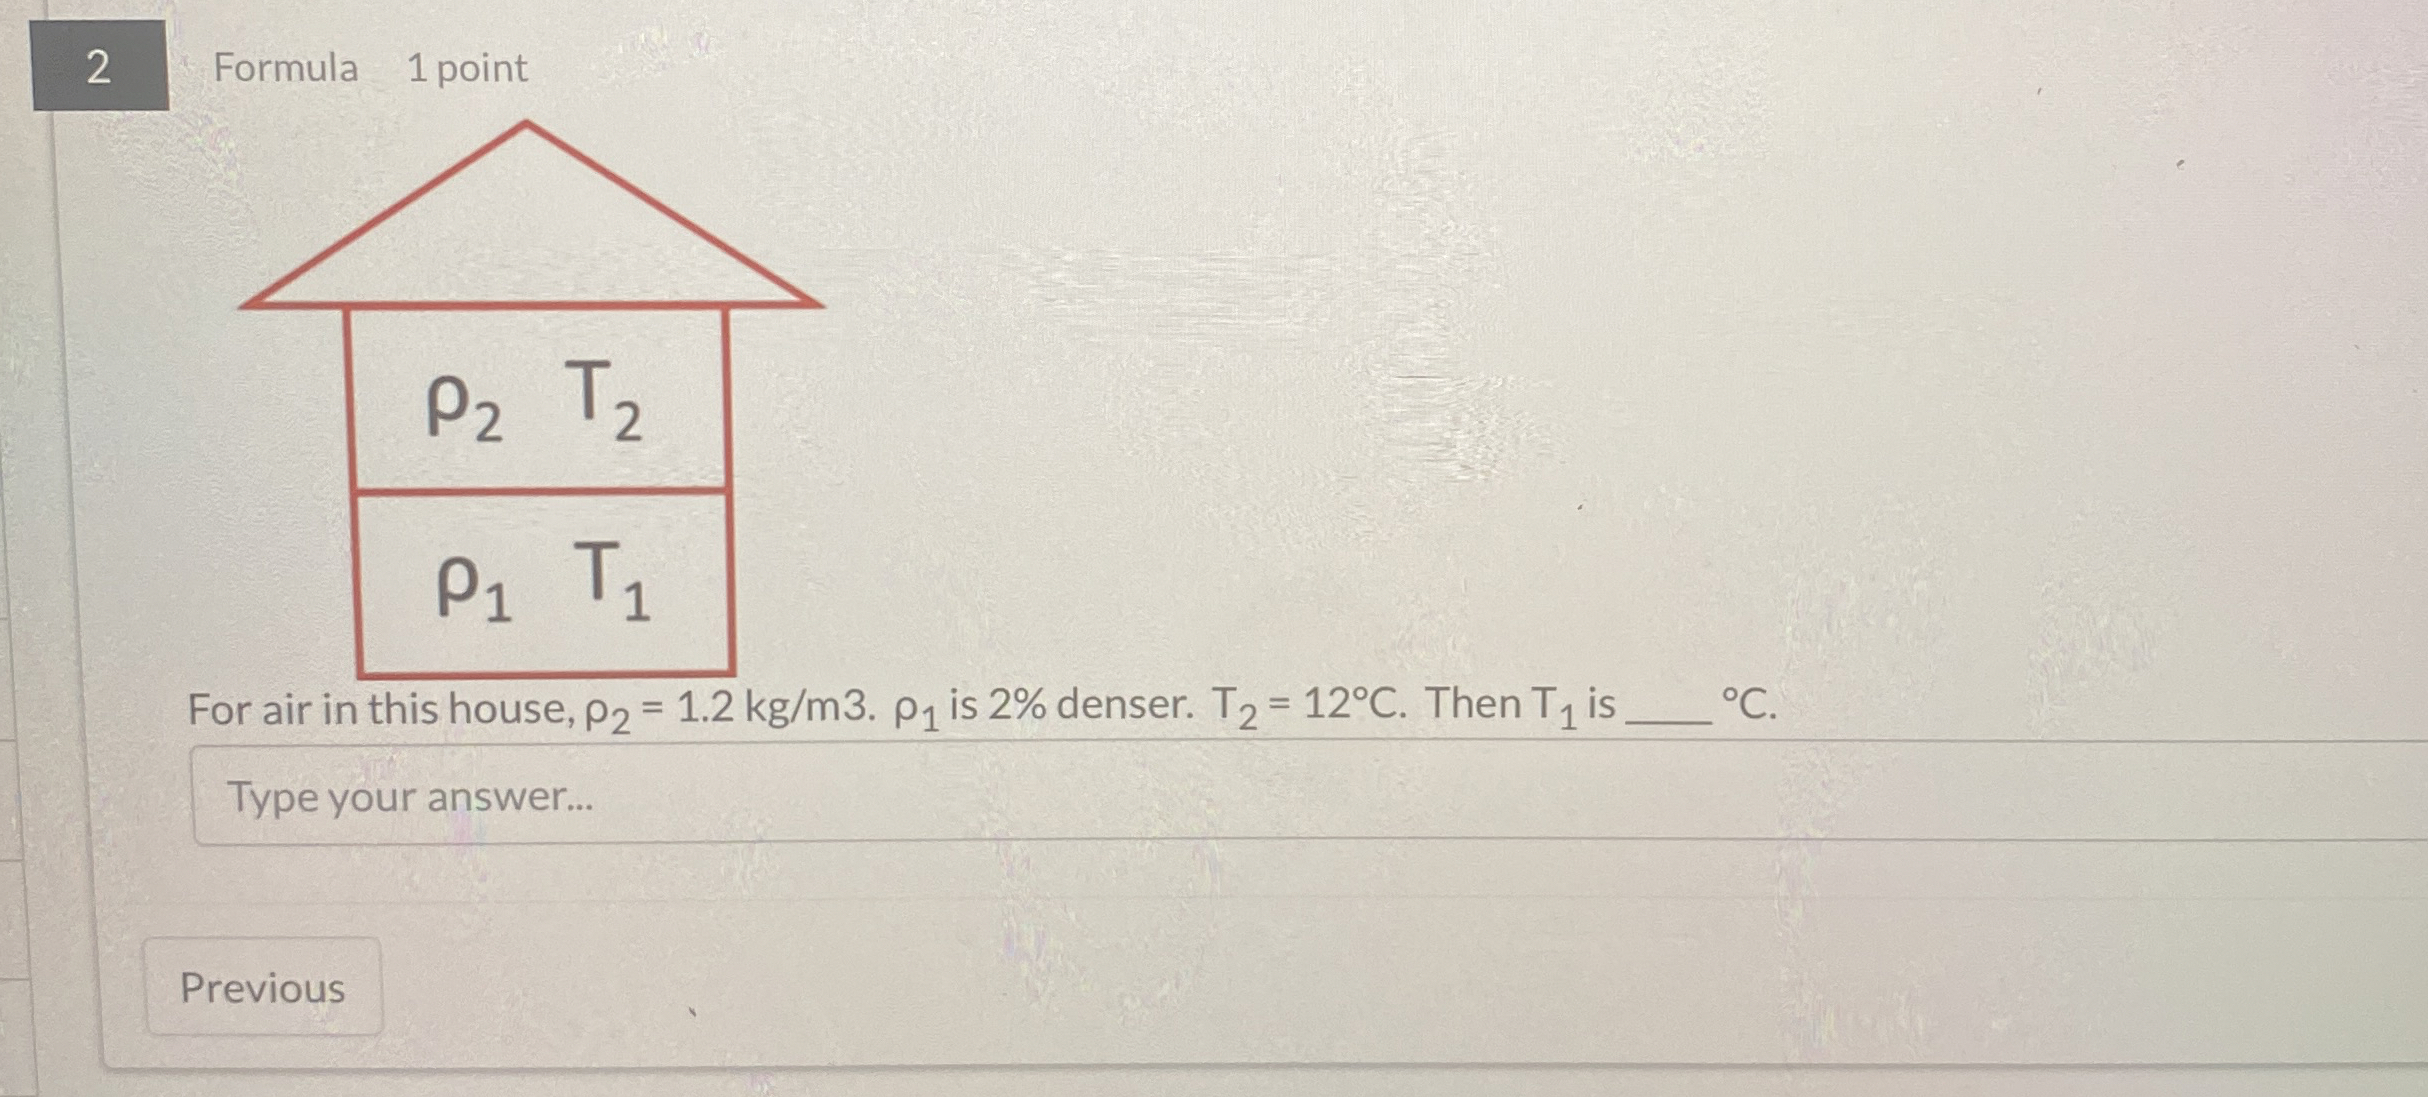 2 Formula 1 point
ρ₂ T₂
ρ₁ T₁
For air in this house, ρ₂ = 1.2 kg/m3. ρ₁ is 2% denser. T₂ = 12°C. Then T₁ is ____ °C.
Type your answer...
Previous